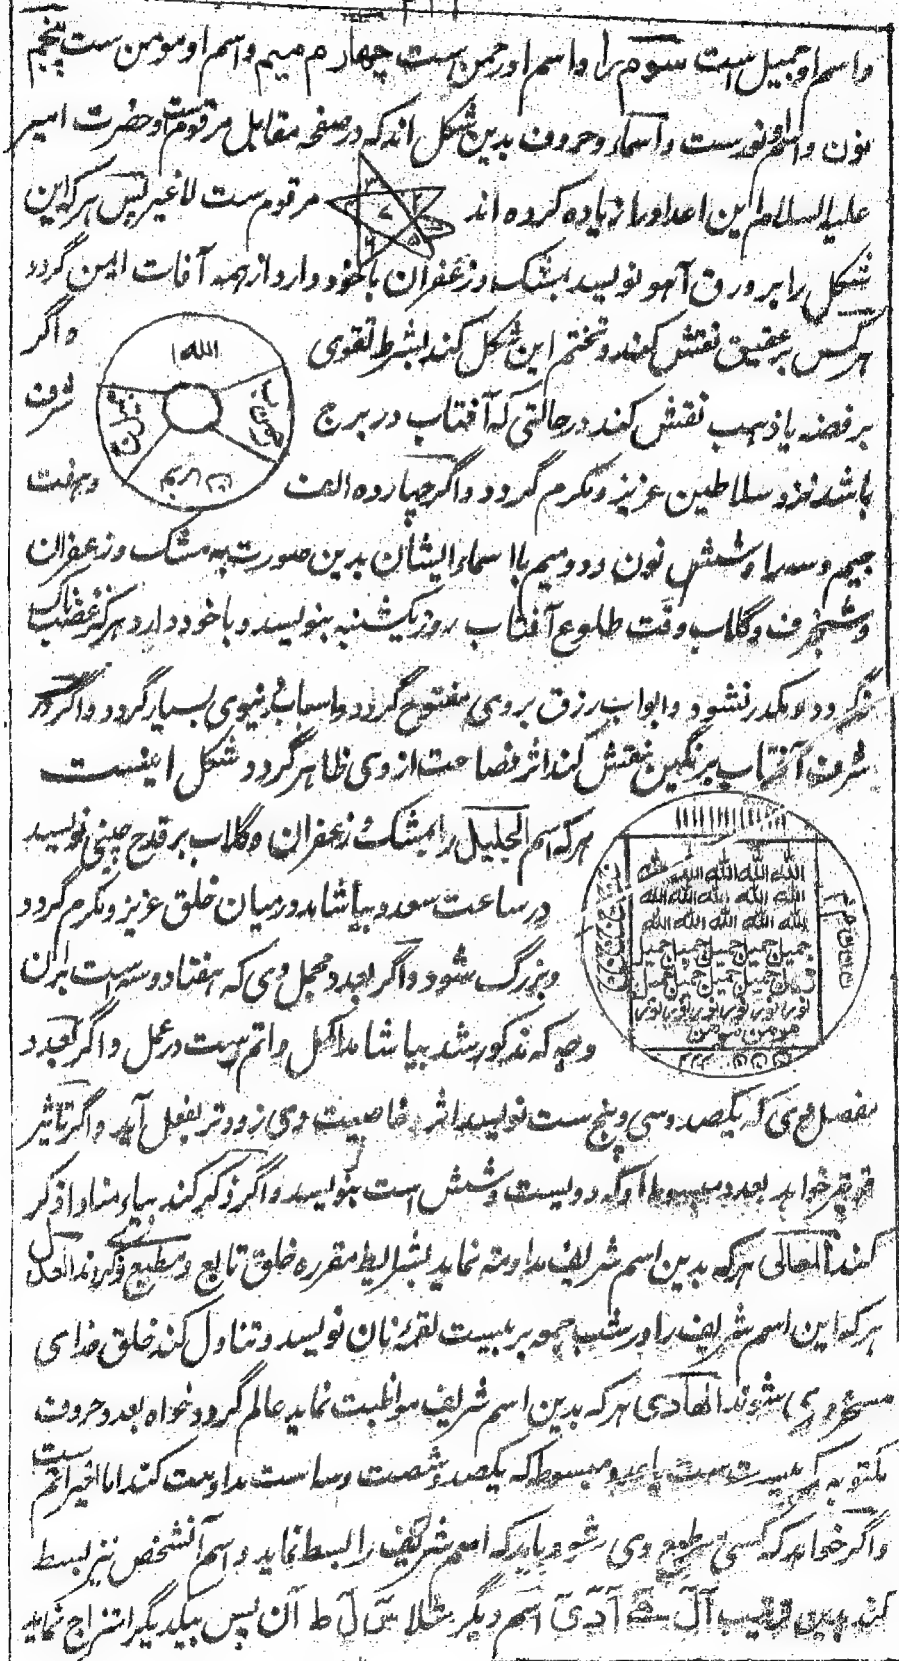 واسم او جمیل است سوم را واسم او رحمن است چهارم میم واسم او مومن ست پنجم
نون واسم او نورست واسماء وحروف بدین شکل اند که در صفحه مقابل مرقوم ست وحضرت امیر
علیه السلام این اعداد را زیاده کرده اند مرقوم ست لاغیر پس هر که این
شکل را بر ورق آهو نویسد بمشک وزعفران باخود دارد از همه آفات ایمن گردد
هر کس بر عقیق نقش کند وتختم این شکل کند بشرط تقوی واگر
الله
بر فضه یا ذهب نقش کند در حالتی که آفتاب در برج شرف
باشد نزد سلاطین عزیز ومکرم گردد واگر چهارده الف وهفت
جیم وسه را وشش نون ودو میم با اسماء ایشان بدین صورت به مشک وزعفران
وشنجرف وگلاب وقت طلوع آفتاب روز یکشنبه بنویسد وباخود دارد هرگز غضبناک
نگردد ومکدر نشود وابواب رزق بروی مفتوح گردد واسباب دنیوی بسیار گردد واگر در
شرف آفتاب بر نگین نقش کند اثر فصاحت از وی ظاهر گردد شکل اینست
هر که اسم الجلیل را بمشک وزعفران وگلاب بر قدح چینی نویسد
الله الله الله الله الله
الله الله الله الله
الله الله الله الله
جمیل جمیل جمیل جمیل
نور نور نور نور
مومن مومن
در ساعت سعد وبیاشامد در میان خلق عزیز ومکرم گردد
وبزرگ شود واگر بعدد مجمل وی که هفتاد وسه است بران
وجه که مذکور شد بیاشامد اکمل واتم ست در عمل واگر بعدد
مفصل وی که یکصد وسی وپنج ست نویسد اثر خاصیت وی زودتر بفعل آید واگر تاثیر
قوی تر خواهد بعدد مبسوط او که دویست وشش است بنویسد واگر ذکر کند بیاء منادا ذکر
کند المتعالی هر که بدین اسم شریف مداومت نماید بشرایط مقرره خلق تابع ومطیع وی گردند العدل
هر که این اسم شریف را در شب جمعه بر بیست لقمه نان نویسد وتناول کند خلق خدای
مسخر وی شوند الهادی هر که بدین اسم شریف مواظبت نماید عالم گردد خواه بعدد حروف
مکتوبه که بیست ست یا عدد مبسوط که یکصد وشصت وسه است مداومت کند اما اخیر اتم ست
واگر خواهد که کسی مطیع وی شود باید که اسم شریف را بسط نماید واسم آنشخص نیز بسط
کند بدین ترتیب آل ه آ د ی اسم دیگر مثلا س ل ط ا ن پس بیکدیگر امتزاج نماید